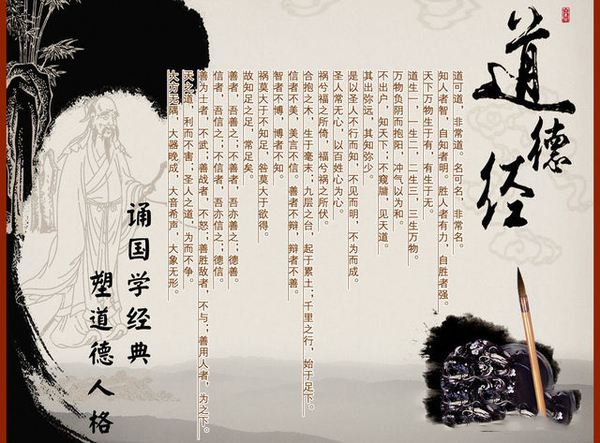 道德经
道可道，非常道。名可名，非常名。
知人者智，自知者明。胜人者有力，自胜者强。
天下万物生于有，有生于无。
道生一，一生二，二生三，三生万物。
万物负阴而抱阳，冲气以为和。
不出户，知天下；不窥牖，见天道。
其出弥远，其知弥少。
是以圣人不行而知，不见而明，不为而成。
圣人常无心，以百姓心为心。
祸兮福之所倚，福兮祸之所伏。
合抱之木，生于毫末；九层之台，起于累土；千里之行，始于足下。
信者不美，美言不信。善者不辩，辩者不善。
智者不博，博者不知
祸莫大于不知足，咎莫大于欲得。
故知足之足，常足矣。
善者，吾善之；不善者，吾亦善之；德善。
信者，吾信之；不信者，吾亦信之；德信。
善为士者，不武；善战者，不怒；善胜敌者，不与；善用人者，为之下。
天之道，利而不害；圣人之道，为而不争。
大方无隅，大器晚成，大音希声，大象无形。
诵国学经典
塑道德人格